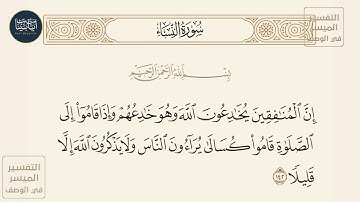 سُورَةُ النِّسَاءِ
التفسير
الميسر
في الوصف
بِسْمِ اللَّهِ الرَّحْمَٰنِ الرَّحِيمِ
إِنَّ الْمُنَافِقِينَ يُخَادِعُونَ اللَّهَ وَهُوَ خَادِعُهُمْ وَإِذَا قَامُوا إِلَى
الصَّلَاةِ قَامُوا كُسَالَىٰ يُرَاءُونَ النَّاسَ وَلَا يَذْكُرُونَ اللَّهَ إِلَّا
قَلِيلًا ١٤٢
التفسير
الميسر
في الوصف